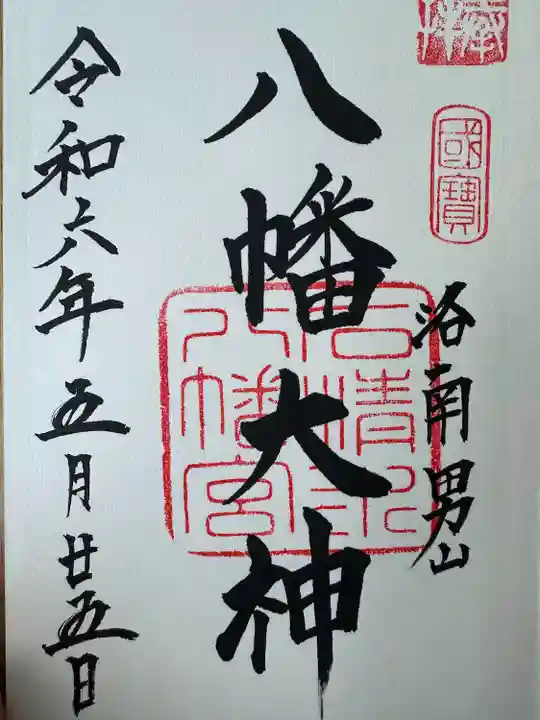 奉拝
國寶
洛南男山
八幡大神
石清水
八幡宮
令和六年五月廿五日